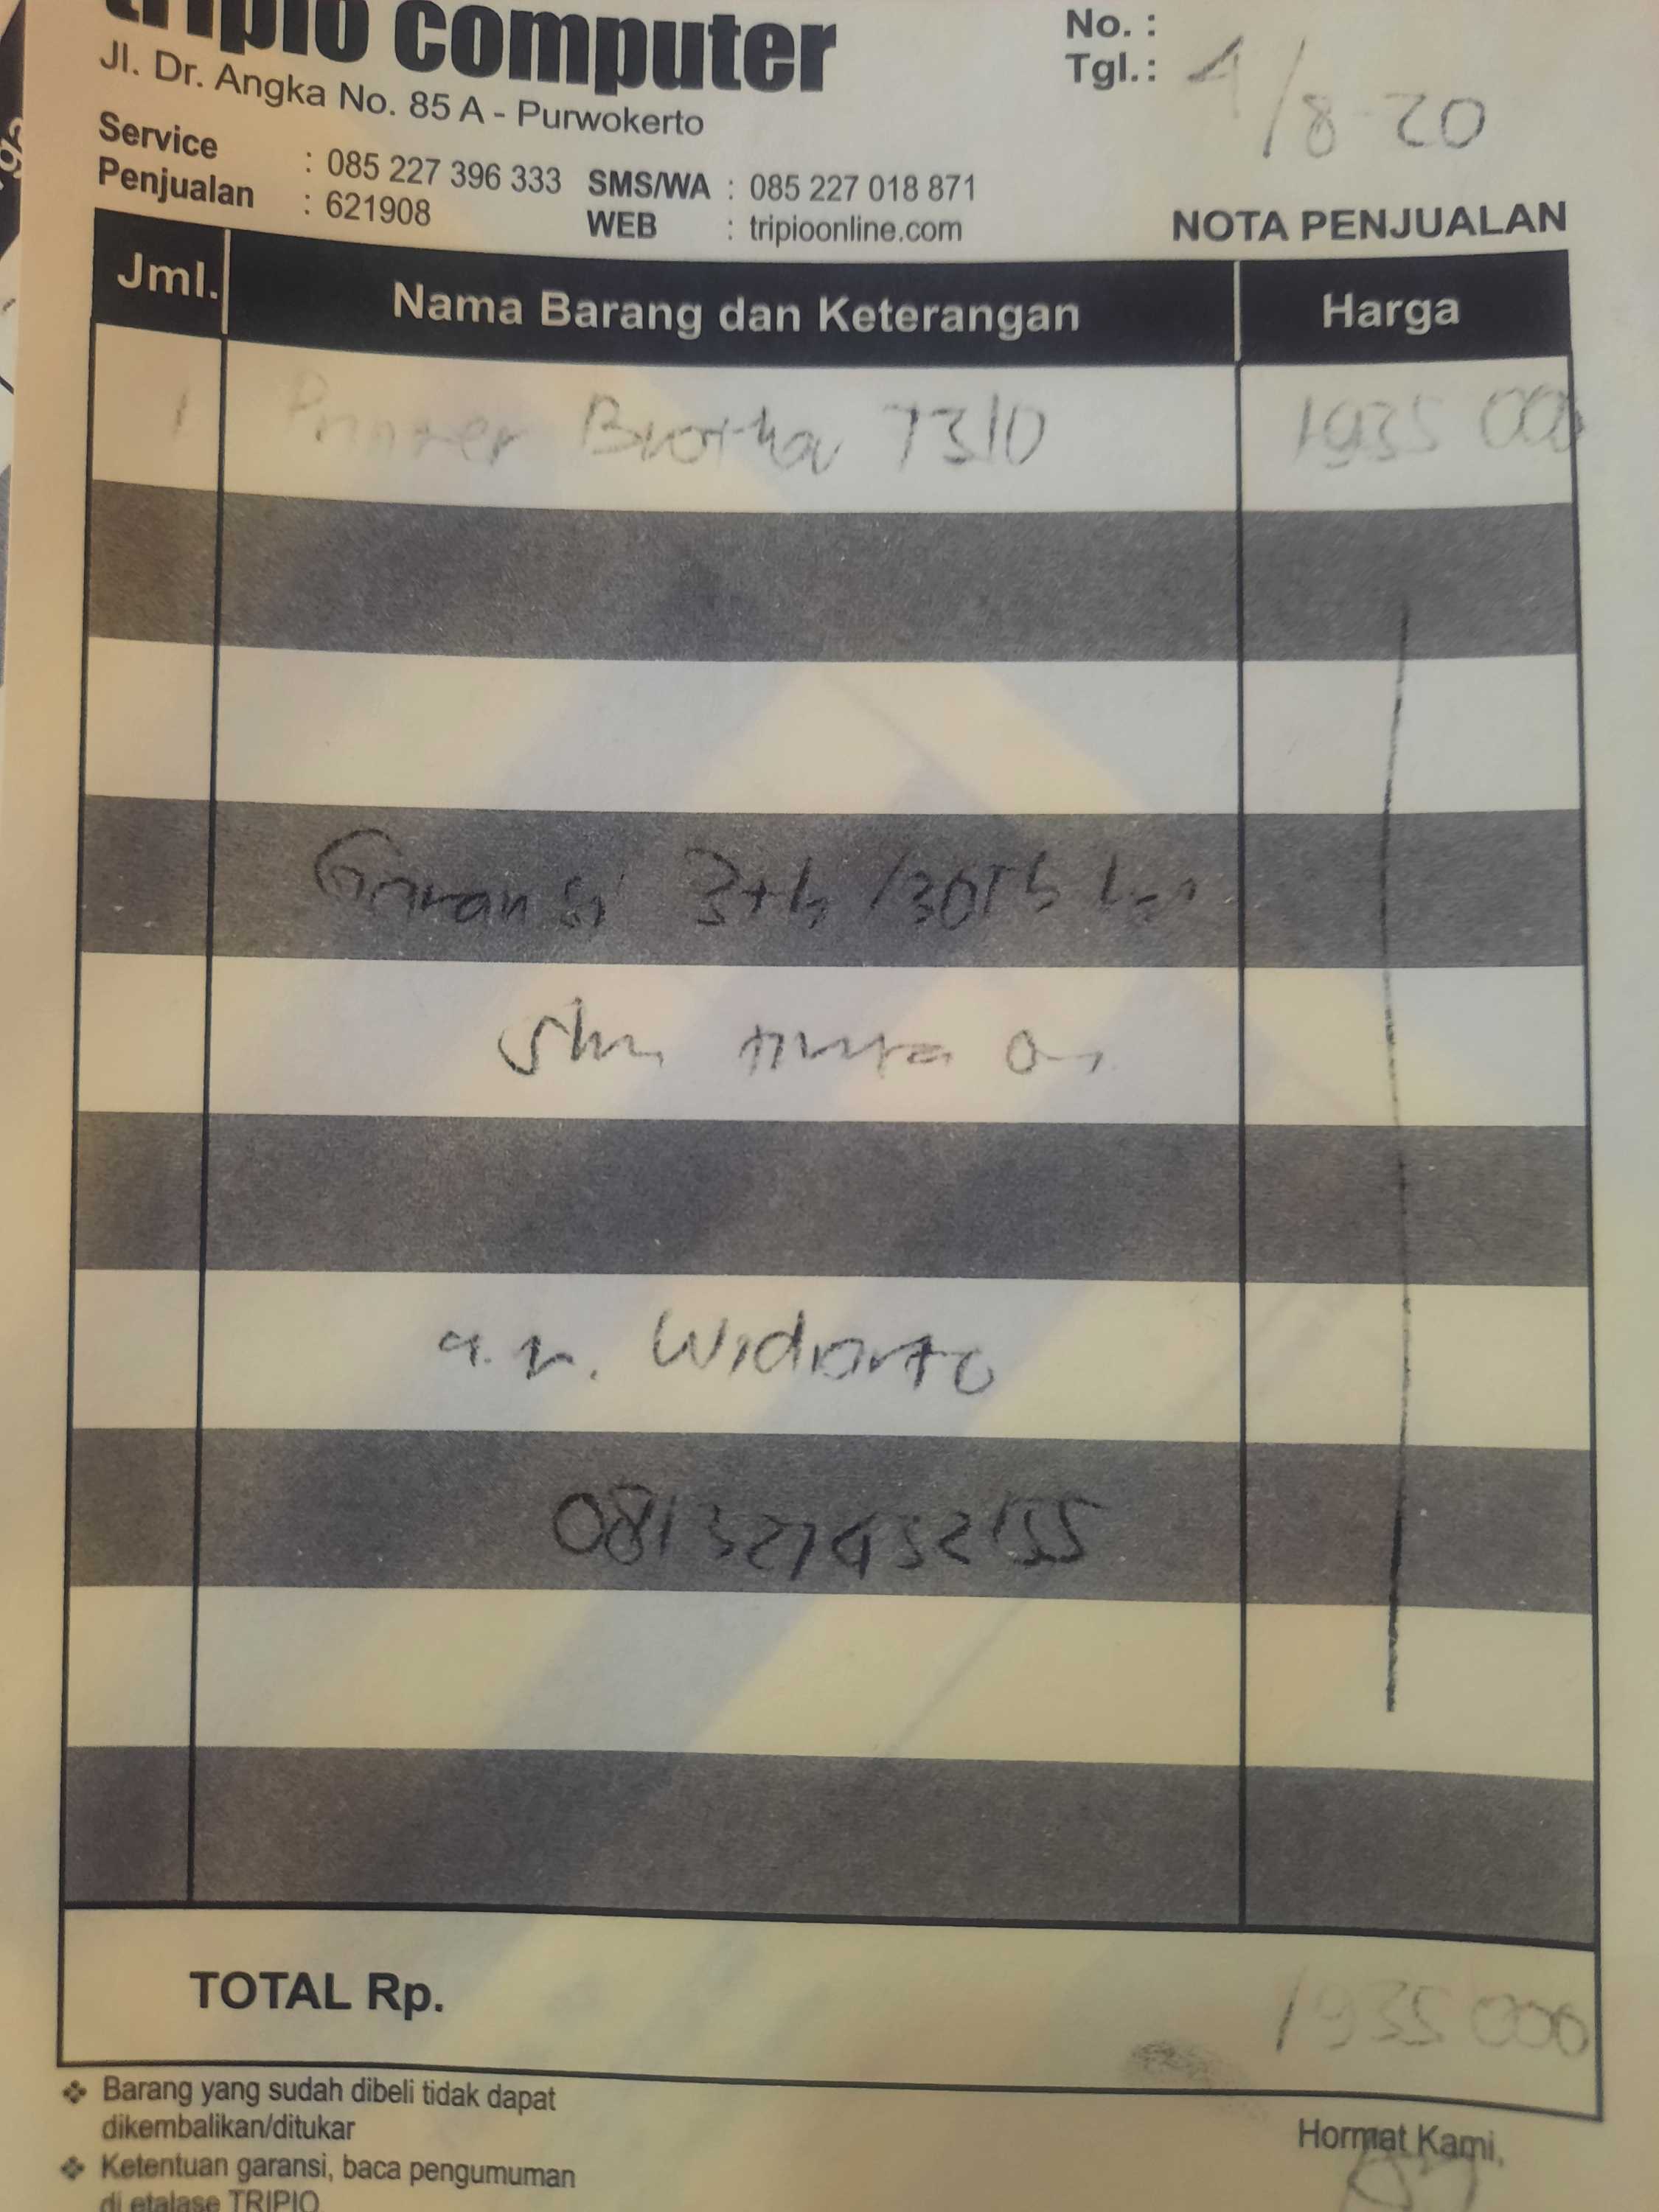 tripio computer
Jl. Dr. Angka No. 85 A - Purwokerto
Service : 085 227 396 333 SMS/WA : 085 227 018 871
Penjualan : 621908 WEB : tripioonline.com
No. :
Tgl. : 4/8-20
NOTA PENJUALAN
Jml. Nama Barang dan Keterangan Harga
1 Printer Brother 7310 1935 000
Garansi 3th /30rb
a.n. Widiarto
081327432155
TOTAL Rp. 1935 000
❖ Barang yang sudah dibeli tidak dapat
dikembalikan/ditukar
❖ Ketentuan garansi, baca pengumuman
di etalase TRIPIO
Hormat Kami,